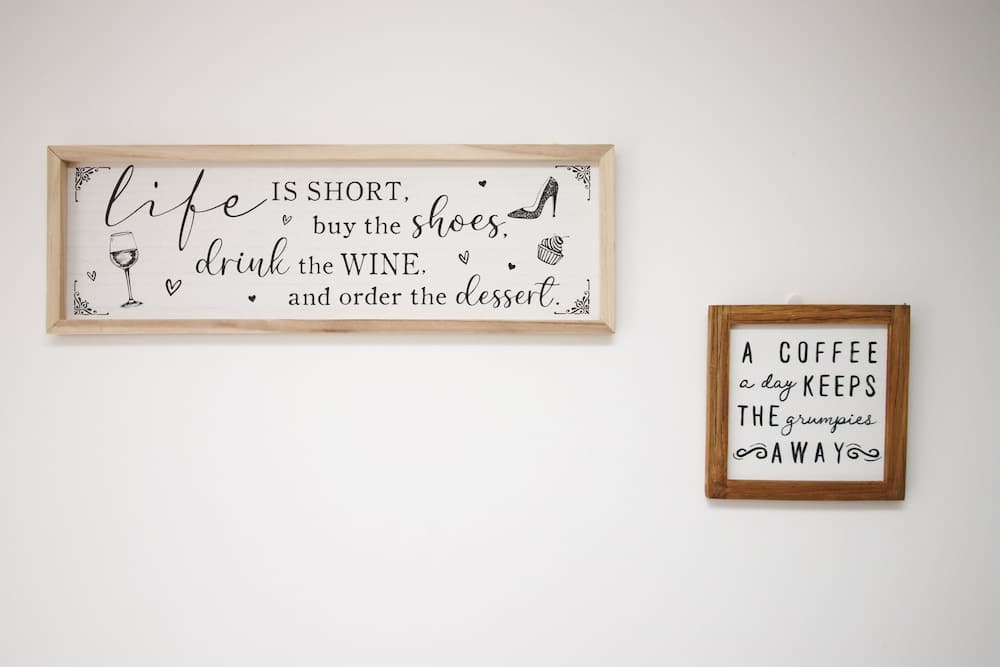 life IS SHORT,
buy the shoes,
drink the WINE,
and order the dessert.
A COFFEE
a day KEEPS
THE grumpies
AWAY